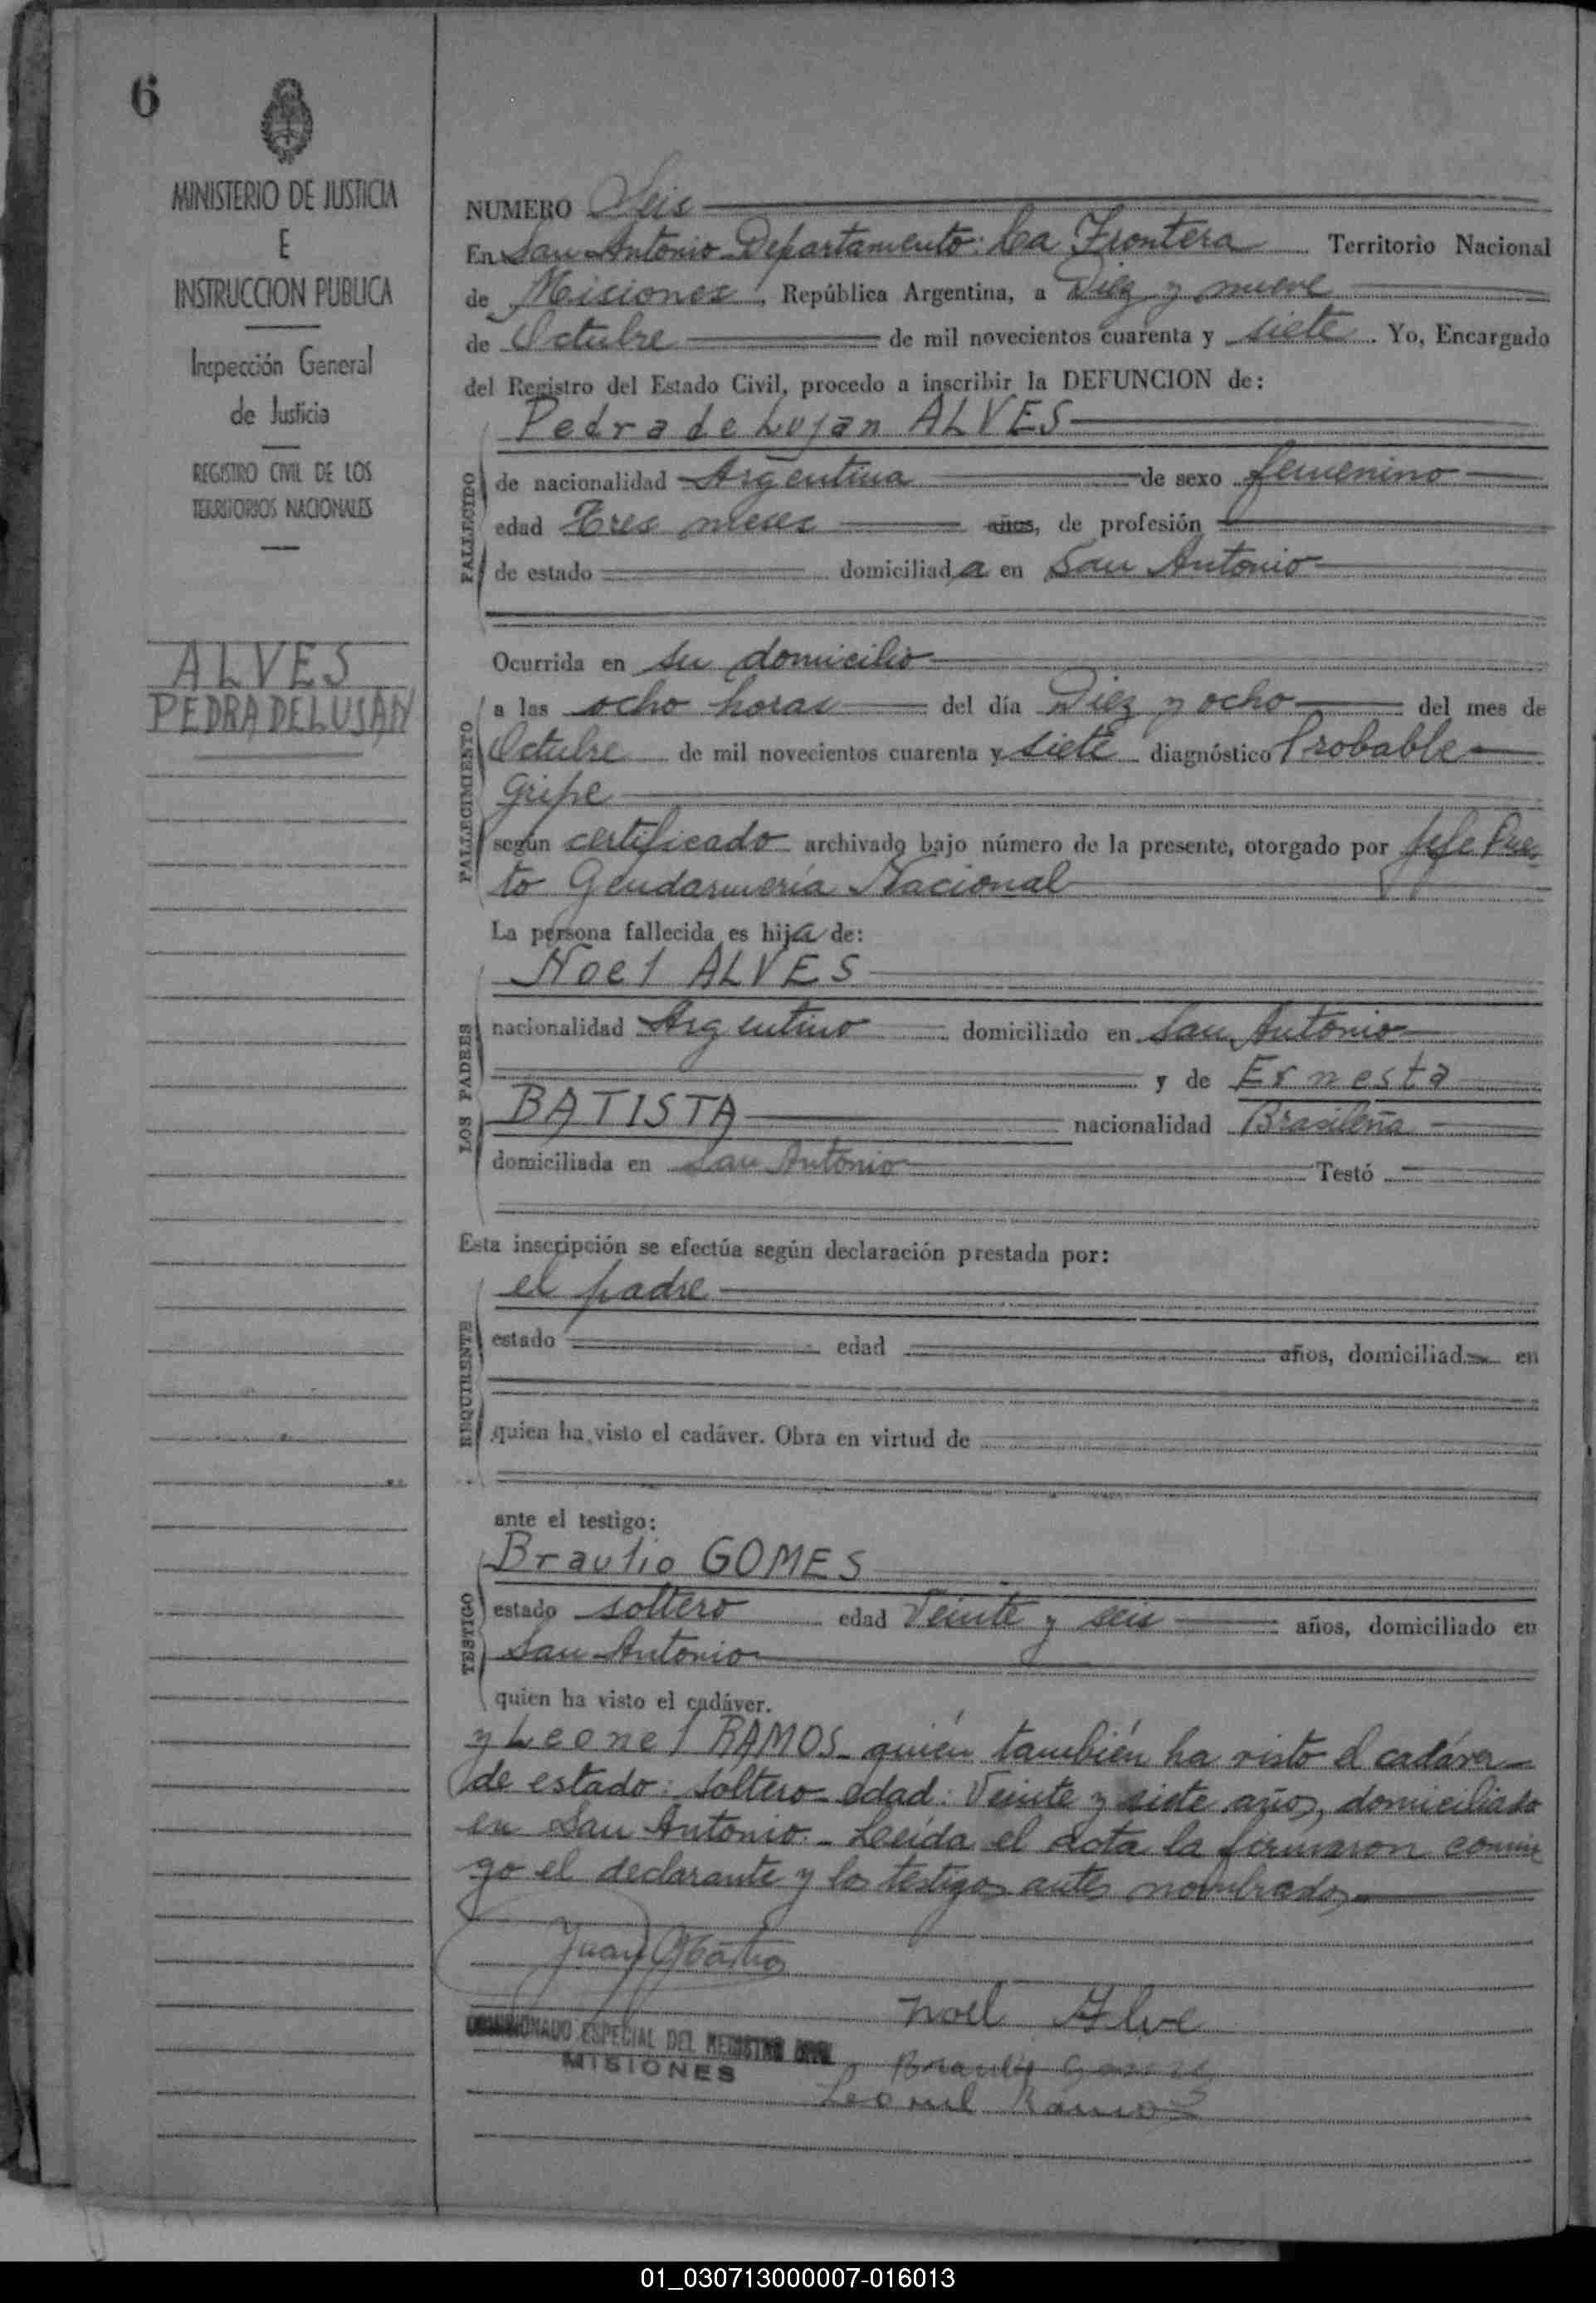 6
MINISTERIO DE JUSTICIA
E
INSTRUCCION PUBLICA
Inspección General
de Justicia
REGISTRO CIVIL DE LOS
TERRITORIOS NACIONALES
ALVES
PEDRA DE LUJAN
NUMERO Seis
En San Antonio Departamento: La Frontera Territorio Nacional
de Misiones, República Argentina, a Diez y nueve
de Octubre de mil novecientos cuarenta y siete. Yo, Encargado
del Registro del Estado Civil, procedo a inscribir la DEFUNCION de:
Pedra de Lujan ALVES
FALLECIDO
de nacionalidad Argentina de sexo femenino
edad Tres meses años, de profesión
de estado domiciliada en San Antonio
Ocurrida en su domicilio
FALLECIMIENTO
a las ocho horas del día Diez y ocho del mes de
Octubre de mil novecientos cuarenta y siete diagnóstico Probable
gripe
según certificado archivado bajo número de la presente, otorgado por Jefe Pues
to Gendarmería Nacional
La persona fallecida es hija de:
LOS PADRES
Noel ALVES
nacionalidad Argentino domiciliado en San Antonio
y de Ernesta
BATISTA nacionalidad Brasileña
domiciliada en San Antonio Testó
Esta inscripción se efectúa según declaración prestada por:
REQUIRENTE
el padre
estado edad años, domiciliad en
quien ha visto el cadáver. Obra en virtud de
ante el testigo:
TESTIGO
Braulio GOMES
estado soltero edad Veinte y seis años, domiciliado en
San Antonio
quien ha visto el cadáver.
y Leonel RAMOS quién también ha visto el cadáver
de estado: soltero edad: Veinte y siete años, domiciliado
en San Antonio. Leída el acta la firmaron conmi
go el declarante y los testigos antes nombrados
Juan
Noel Alve
COMISIONADO ESPECIAL DEL REGISTRO CIVIL
MISIONES
Braulio Gomes
Leonel Ramos
01_030713000007-016013